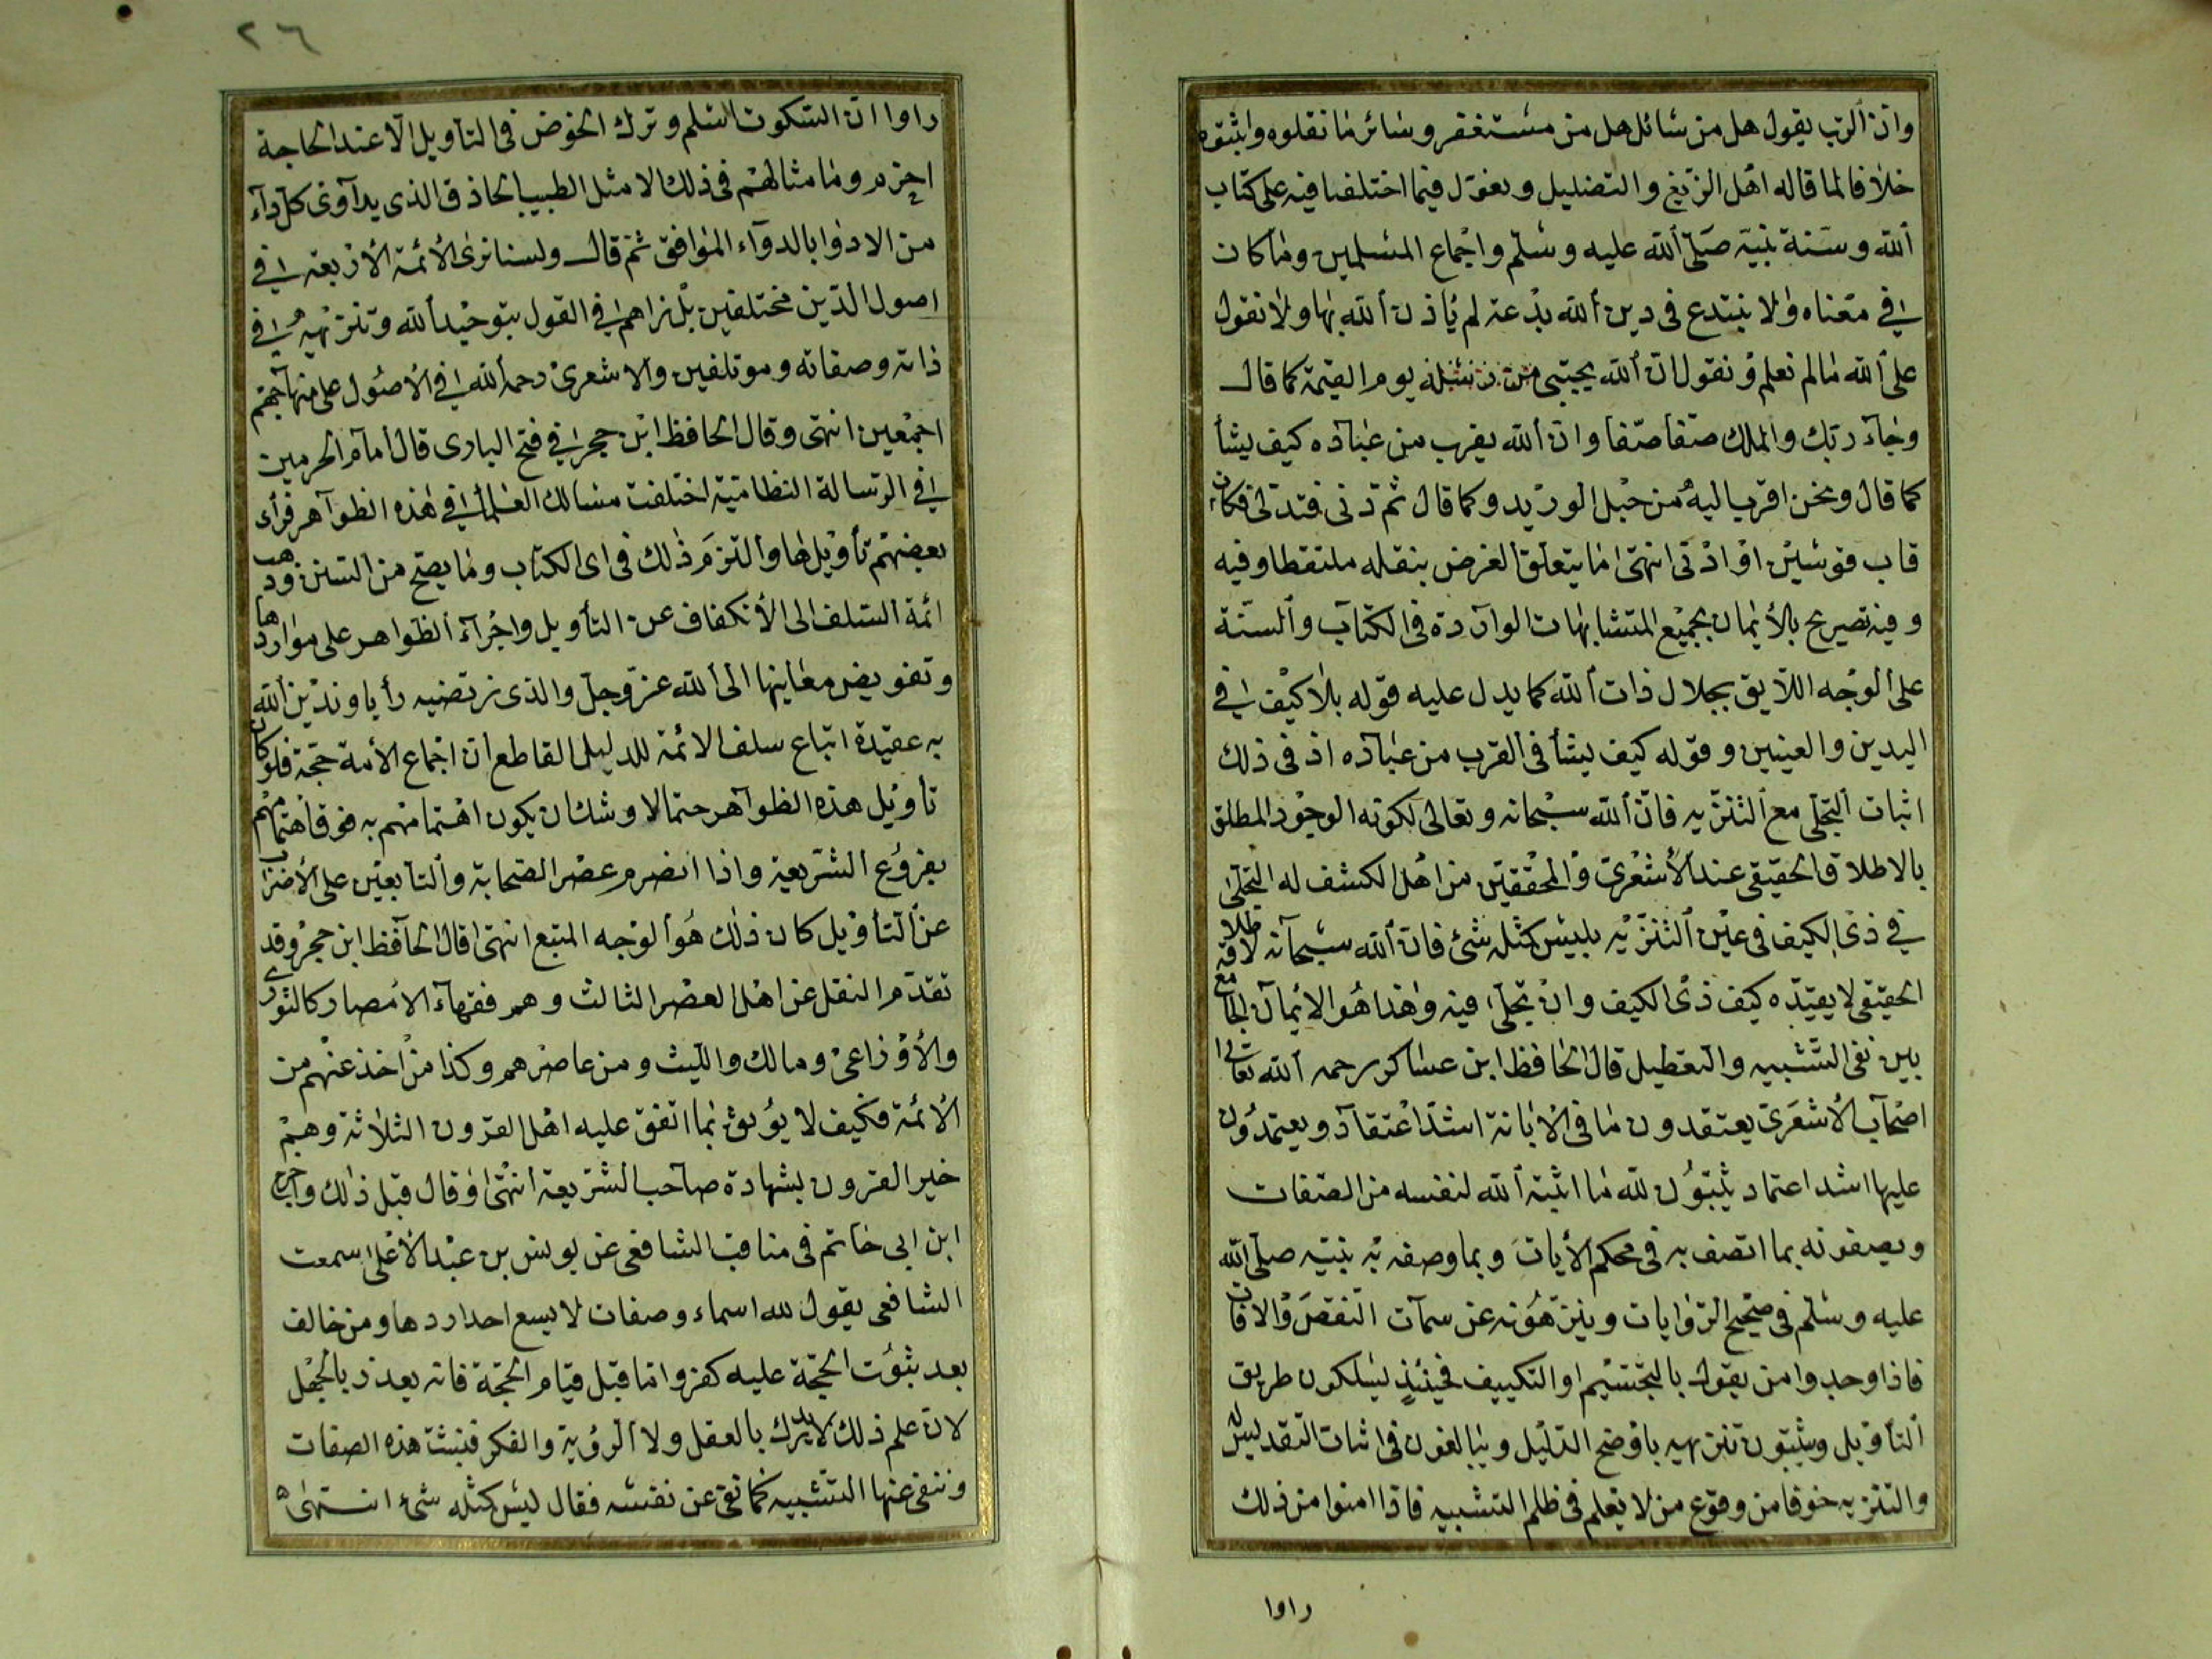 وان الرب يقول هل من سائل هل من مستغفر وسائر ما نقلوه واثبتوه
خلافا لما قاله اهل الزيغ والتضليل ونعول فيما اختلفنا فيه على كتاب
الله وسنة نبيه صلى الله عليه وسلم واجماع المسلمين وما كان
في معناه ولا نبتدع في دين الله بدعة لم ياذن الله بها ولا نقول
على الله ما لم نعلم ونقول ان الله يجيئ يوم القيمة كما قال
وجاء ربك والملك صفا صفا وان الله يقرب من عباده كيف يشأ
كما قال ونحن اقرب اليه من حبل الوريد وكما قال ثم دنى فتدلى فكان
قاب قوسين او ادنى انتهى ما يتعلق الغرض بنقله ملتقطا وفيه
وفيه تصريح بالأيمان بجميع المتشابهات الواردة في الكتاب والسنة
على الوجه اللايق بجلال ذات الله كما يدل عليه قوله بلا كيف في
اليدين والعينين وقوله كيف يشأ في القرب من عباده اذ في ذلك
اثبات التجلى مع التنزيه فان الله سبحانه وتعالى لكونه الوجود المطلق
بالاطلاق الحقيقى عند الأشعري والمحققين من اهل الكشف له التجلى
في ذى الكيف في عين التنزيه بليس كمثله شئ فان الله سبحانه لاطلاقه
الحقيقى لا يقيده كيف ذى الكيف وان تجلى فيه وهذا هو الايمان الجامع
بين نفى التشبيه والتعطيل قال الحافظ ابن عساكر رحمه الله تعالى
اصحاب الأشعرى يعتقدون ما في الأبانة اشد اعتقاد ويعتمدون
عليها اشد اعتماد يثبتون لله ما اثبته الله لنفسه من الصفات
ويصفونه بما اتصف به في محكم الأيات وبما وصفه به نبيه صلى الله
عليه وسلم في صحيح الروايات وينزهونه عن سمات النقص والافات
فاذا وجدوا من يقول بالتجسيم او التكييف فحينئذ يسلكون طريق
التأويل ويثبتون تنزيهه باوضح الدليل ويبالغون في اثبات التقديس له
والتنزيه خوفا من وقوع من لا يعلم في ظلم التشبيه فاذا امنوا من ذلك
راوا
٢٦
راوا ان السكوت اسلم وترك الخوض في التأويل الا عند الحاجة
احزم وما مثالهم في ذلك الا مثل الطبيب الحاذق الذى يداوى كل داء
من الادوا بالدواء الموافق ثم قال ولسنا نرى الأئمة الأربعة في
اصول الدين مختلفين بل نراهم في القول بتوحيد الله وتنزيهه في
ذاته وصفاته وموتلفين والاشعرى رحمه الله في الأصول على منهاجهم
اجمعين انتهى وقال الحافظ ابن حجر في فتح البارى قال امام الحرمين
في الرسالة النظامية اختلفت مسالك العلمأ في هذه الظواهر فرأى
بعضهم تأويلها والتزم ذلك في اى الكتاب وما يصح من السنن وذهب
ائمة السلف الى الأنكفاف عن التأويل واجراء الظواهر على مواردها
وتفويض معانيها الى الله عز وجل والذى نرتضيه رأيا وندين الله
به عقيدة اتباع سلف الائمة للدليل القاطع ان اجماع الأمة حجة فلو كان
تأويل هذه الظواهر حتما لاوشك ان يكون اهتمامهم به فوق اهتمامهم
بفروع الشريعة واذا انصرم عصر الصحابة والتابعين على الأضراب
عن التأويل كان ذلك هو الوجه المتبع انتهى قال الحافظ ابن حجر وقد
تقدم النقل عن اهل العصر الثالث وهم فقهاء الأمصار كالثورى
والأوزاعى ومالك والليث ومن عاصرهم وكذا من اخذ عنهم من
الأئمة فكيف لا يوثق بما اتفق عليه اهل القرون الثلاثة وهم
خير القرون بشهادة صاحب الشريعة انتهى وقال قبل ذلك واخرج
ابن ابى حاتم في مناقب الشافعى عن يونس بن عبد الأعلى سمعت
الشافعى يقول لله اسماء وصفات لا يسع احدا ردها ومن خالف
بعد ثبوت الحجة عليه كفر واما قبل قيام الحجة فانه يعذر بالجهل
لان علم ذلك لا يدرك بالعقل ولا الرؤية والفكر فنثبت هذه الصفات
وننفى عنها التشبيه كما نفى عن نفسه فقال ليس كمثله شئ انتهى